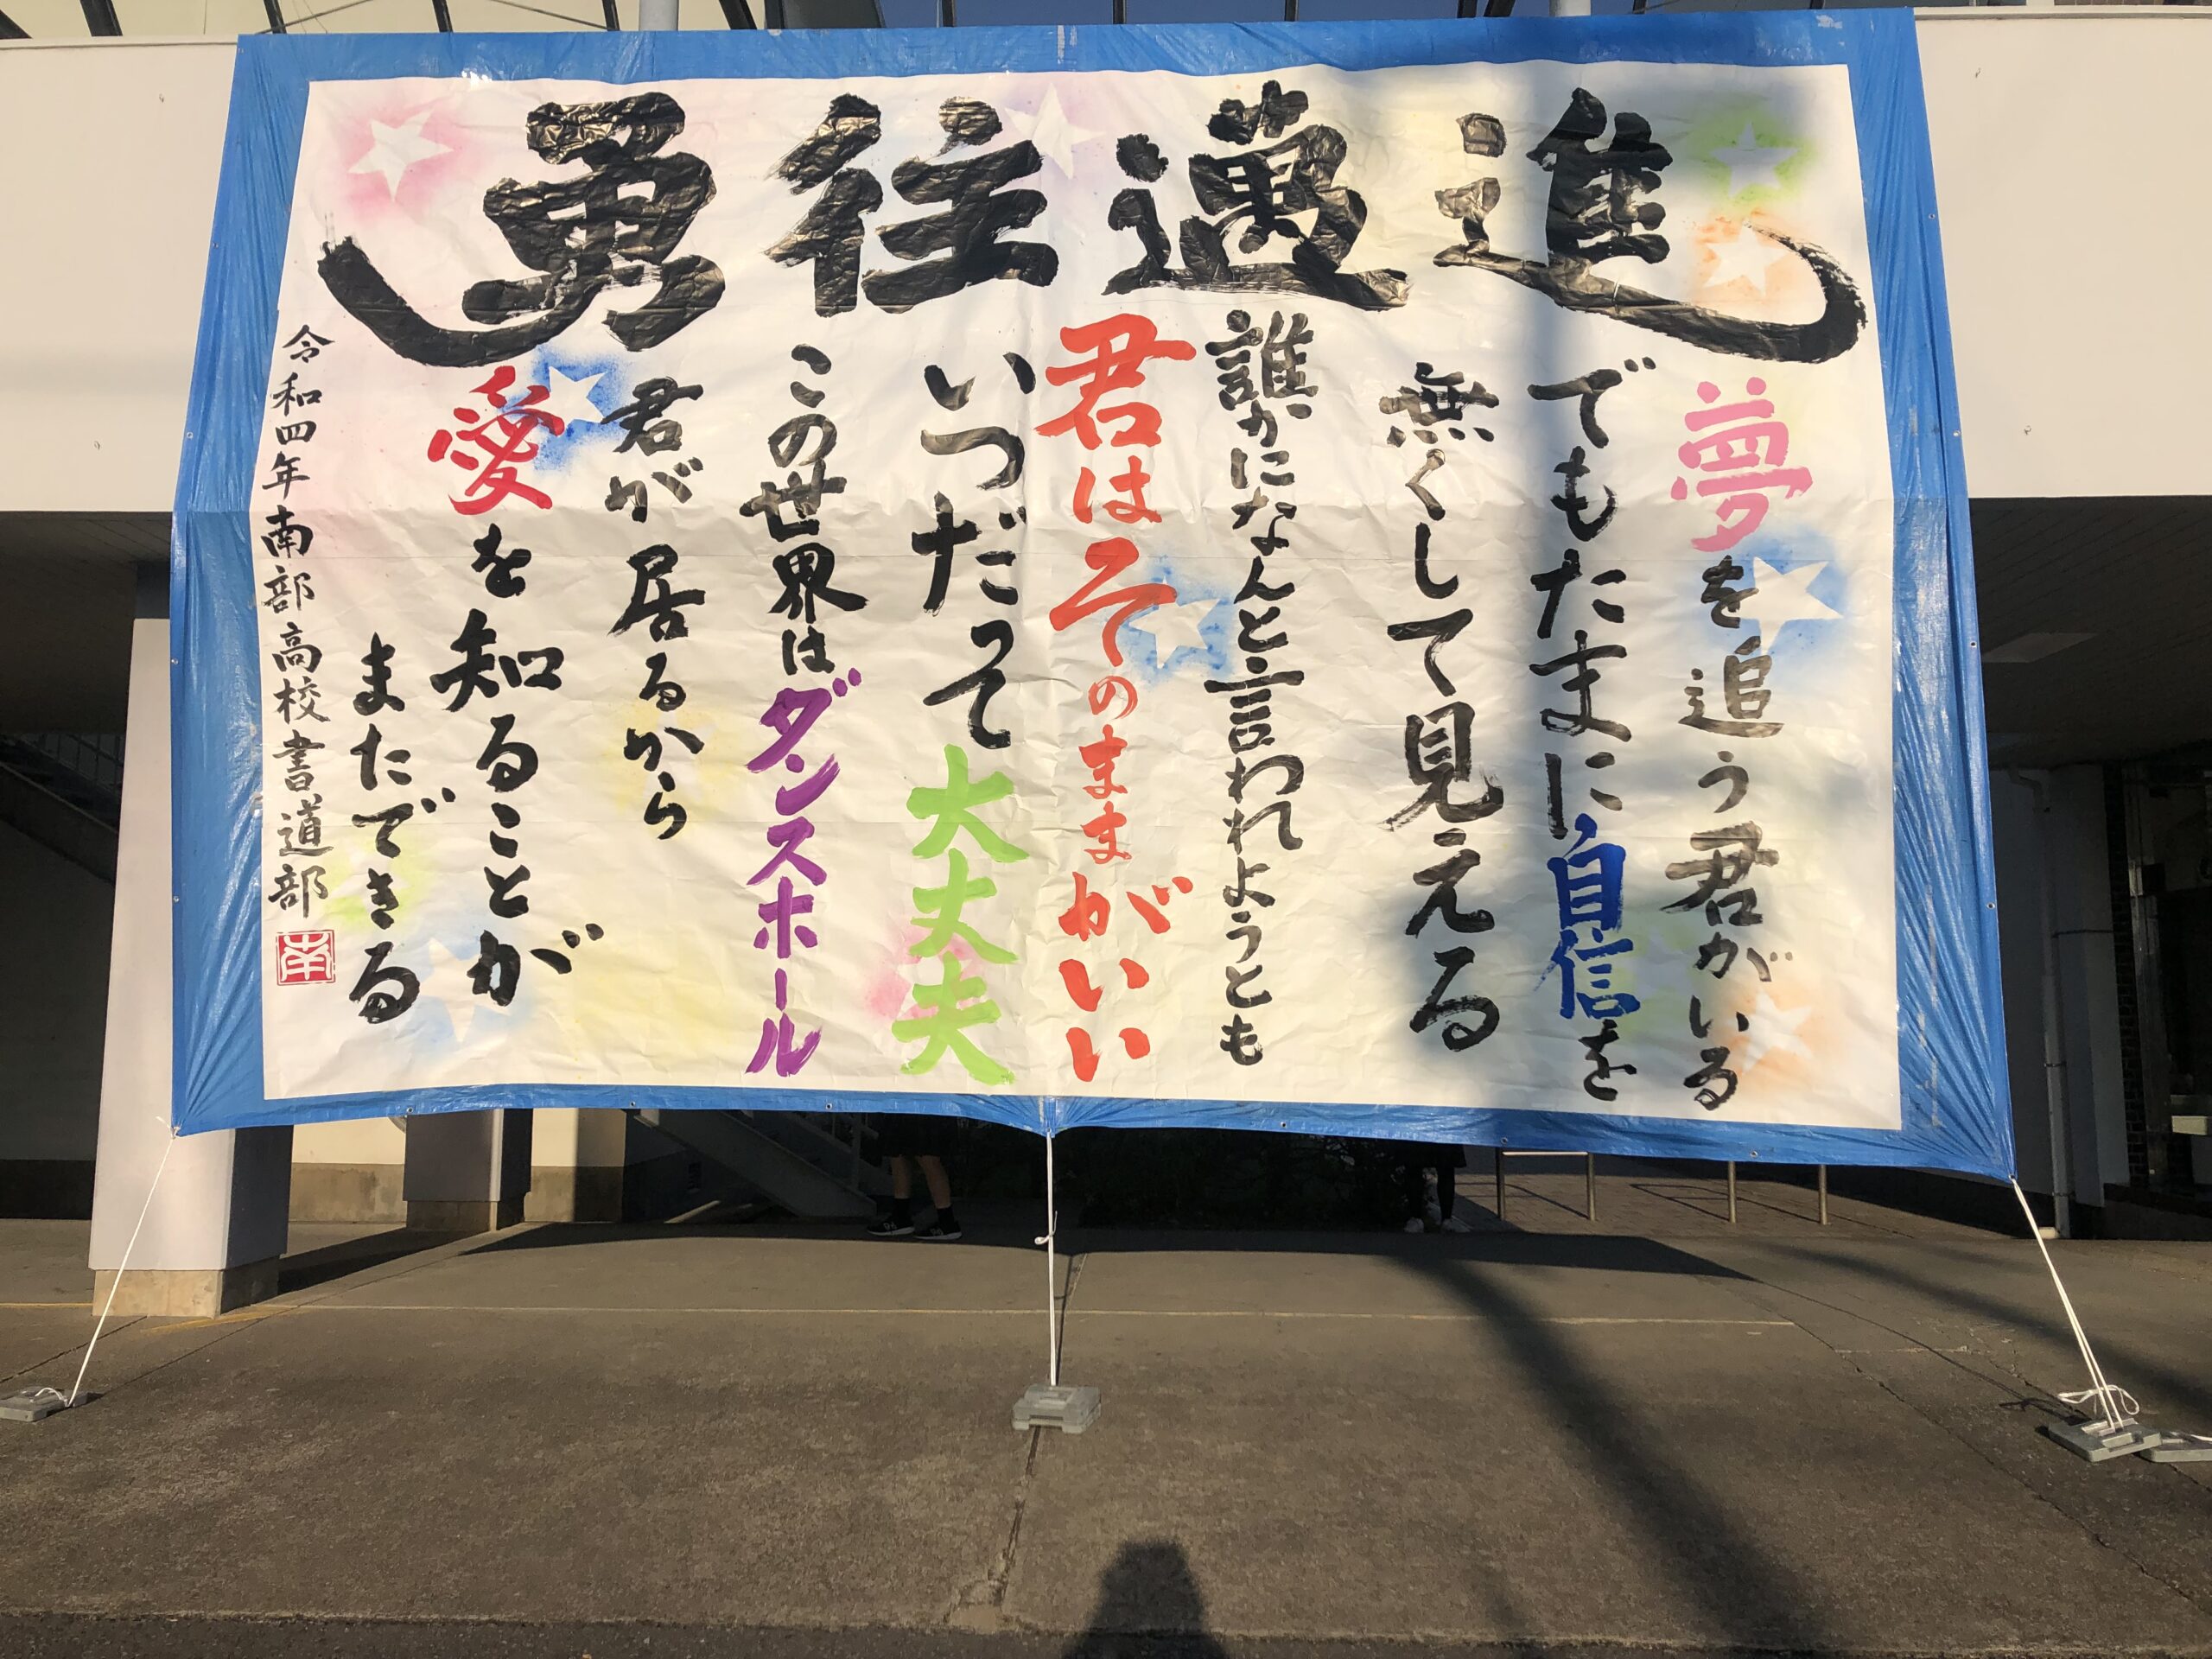 勇往邁進
夢を追う君がいる
でもたまに自信を
無くして見える
誰かになんと言われようとも
君はそのままがいい
いつだって大丈夫
この世界はダンスホール
君が居るから
愛を知ることが
まただできる
令和四年南部高校書道部
南